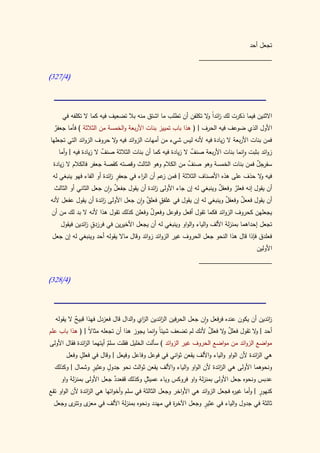 تجعل أحد
(327/4)
الاثنين فيما ذكرت لك زائداً ولا تكلفن أن تطلب ما اشتق منه بلا تضعيف فيه كما لا تكلفه في
الأول الذي ضوعف فيه الحرف ] ( هذا باب تمييز بنات الأربعة والخمسة من الثلاثة ) فأما جعفرٌ
فمن بنات الأربعة لا زيادة فيه لأنه ليس شيء من أمهات الزوائد فيه ولا حروف الزوائد التي تجعلها
زوائد بثبت وإنما بنات الأربعة صنفٌ لا زيادة فيه كما أن بنات الثلاثة صنفٌ لا زيادة فيه ] وأما
سفرجلٌ فمن بنات الخمسة وهو صنفٌ من الكلام وهو الثالث وقصته كقصة جعفر فالكلام لا زيادة
فيه ولا حذف على هذه الأصناف الثلاثة ] فمن زعم أن الراء في جعفرٍ زائدة أو الفاء فهو ينبغي له
أن يقول إنه فعلرٌ وفعفلٌ وينبغي له إن جاء الأولى زائدة أن يقول جفعلٌ وإن جعل الثاني أو الثالث
أن يقول فعملٌ وفعفلٌ وينبغي له إن يقول في غلفقٍ فعلقٌ وإن جعل الأولى زائدة أن يقول غفعل لأنه
يجعلهن كحروف الزوائد فكما تقول أفعل وفوعل وفعولٌ وفعلن كذلك تقول هذا لأنه لا بد لك من أن
تجعل إحداهما بمنزلة الألف والياء والواو وينبغي له أن يجعل الأخيرين في فرزدقٍ زائدين فيقول
فعلدق فإذا قال هذا النحو جعل الحروف غير الزوائد زوائد وقال مالا يقوله أحد وينبغي له إن جعل
الأولين
(328/4)
زائدين أن يكون عنده فرفعل وإن جعل الحرفين الزائدين الزاي والدال قال فعزدل فهذا قبيحٌ لا يقوله
أحد ] ولا تقول فعللٌ ولا فعللٌ لأنك لم تضعف شيئاً وإنما يجوز هذا أن تجعله مثالاً ] ( هذا باب علم
مواضع الزوائد من مواضع الحروف غير الزوائد ) سألت الخليل فقلت سلم أيتهما الزائدة فقال الأولى
هي الزائدة لأن الواو والياء والألف يقعن ثواني في فوعل وفاعل وفيعل ] وقال في فعللٍ وفعلٍ
ونحوهما الأولى هي الزائدة لأن الواو والياء والألف يقعن ثوالث نحو جدولٍ وعثيرٍ وشمال ] وكذلك
عدبس ونحوه جعل الأولى بمنزلة واو فروكس وياء عميثلٍ وكذلك قفعددٌ جعل الأولى بمنزلة واو
كنهورٍ ] وأما غيره فجعل الزوائد هي الأواخر وجعل الثالثة في سلم وأخواتها هي الزائدة لأن الواو تقع
ثالثة في جدول والياء في عثيرٍ وجعل الآخرة في مهدد ونحوه بمنزلة الألف في معزى وتترى وجعل